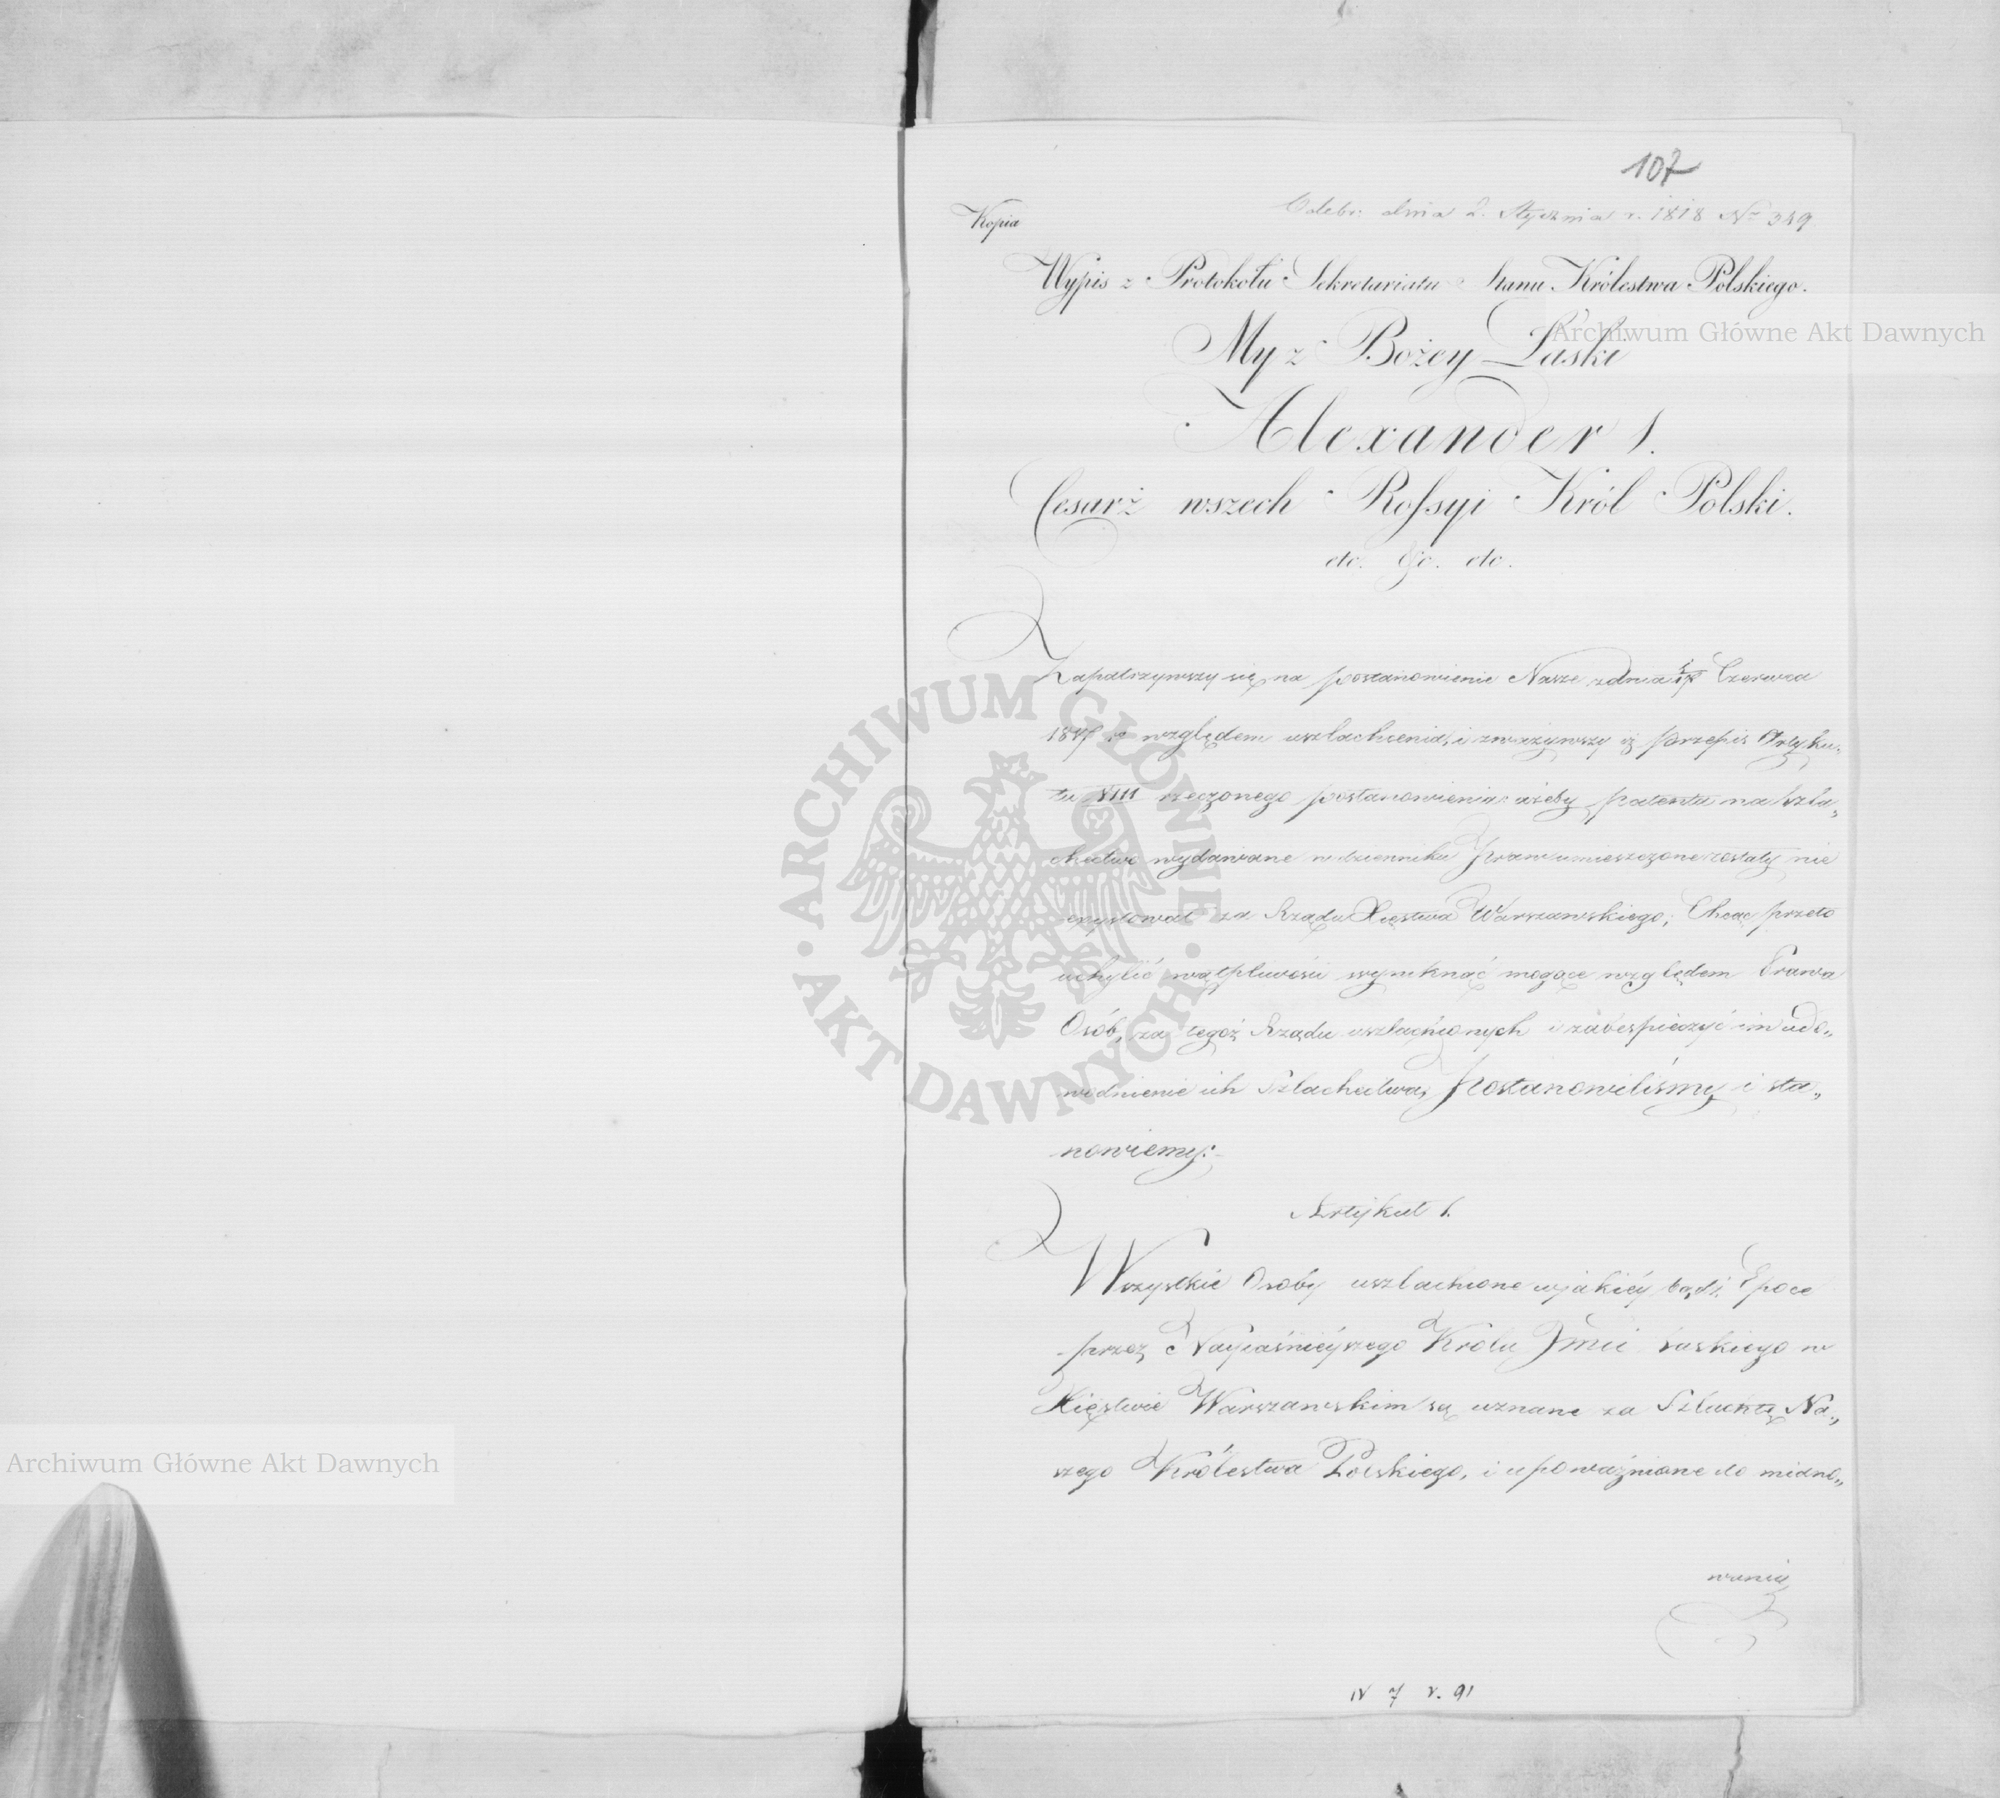 107
Odebr: dnia 2. Stycznia r. 1818 No 349
Kopia
Wypis z Protokołu Sekretariatu Stanu Królestwa Polskiego.
My z Bożey Łaski
Alexander I.
Cesarż wszech Rossyi Król Polski.
etc. &c. etc.
Zapatrzywszy się na postanowienie Nasze z dnia Czerwca
1817 r względem uszlachcenia, i zważywszy iż przepis Artyku„
łu VIII rzeczonego postanowienia ażeby patenta na Szla„
chectwo wydawane w dzienniku Praw umieszczone zostały nie
exystował za Rządu Xięstwa Warszawskiego; Chcąc przeto
uchylić wątpliwości wyniknąć mogące względem Prawa
Osób, za tegoż Rządu uszlachconych i zabespieczyć im udo„
wodnienie ich Szlachectwa, Postanowiliśmy i sta„
nowiemy:
Artykuł I.
Wszystkie Osoby uszlachcone w jakiéy bądź Epoce
przez Nayjaśnieyszego Króla Jmci Saskiego w
Xięstwie Warszawskim są uznane za Szlachtę Na„
szego Królestwa Polskiego, i upoważnione do miano„
wania
IV 7 r. 91
Archiwum Główne Akt Dawnych
Archiwum Główne Akt Dawnych
ARCHIWUM GŁÓWNE · AKT DAWNYCH ·